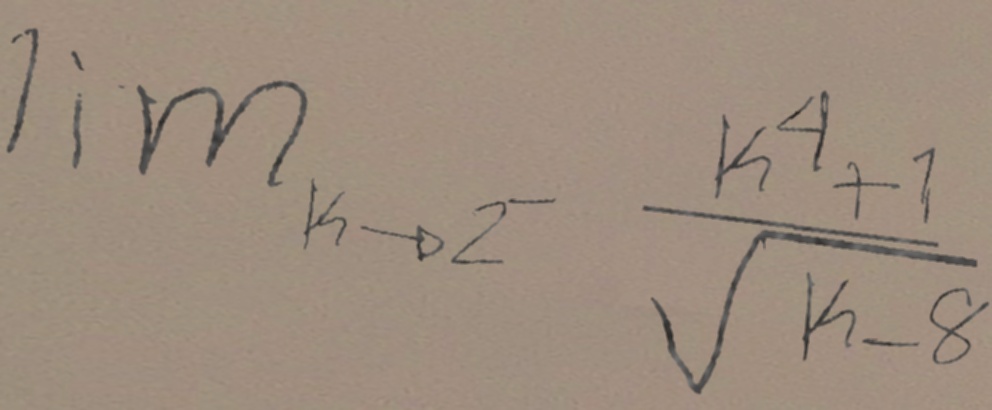 \lim_{k \to 2^-} \frac{k^4+1}{\sqrt{k-8}}